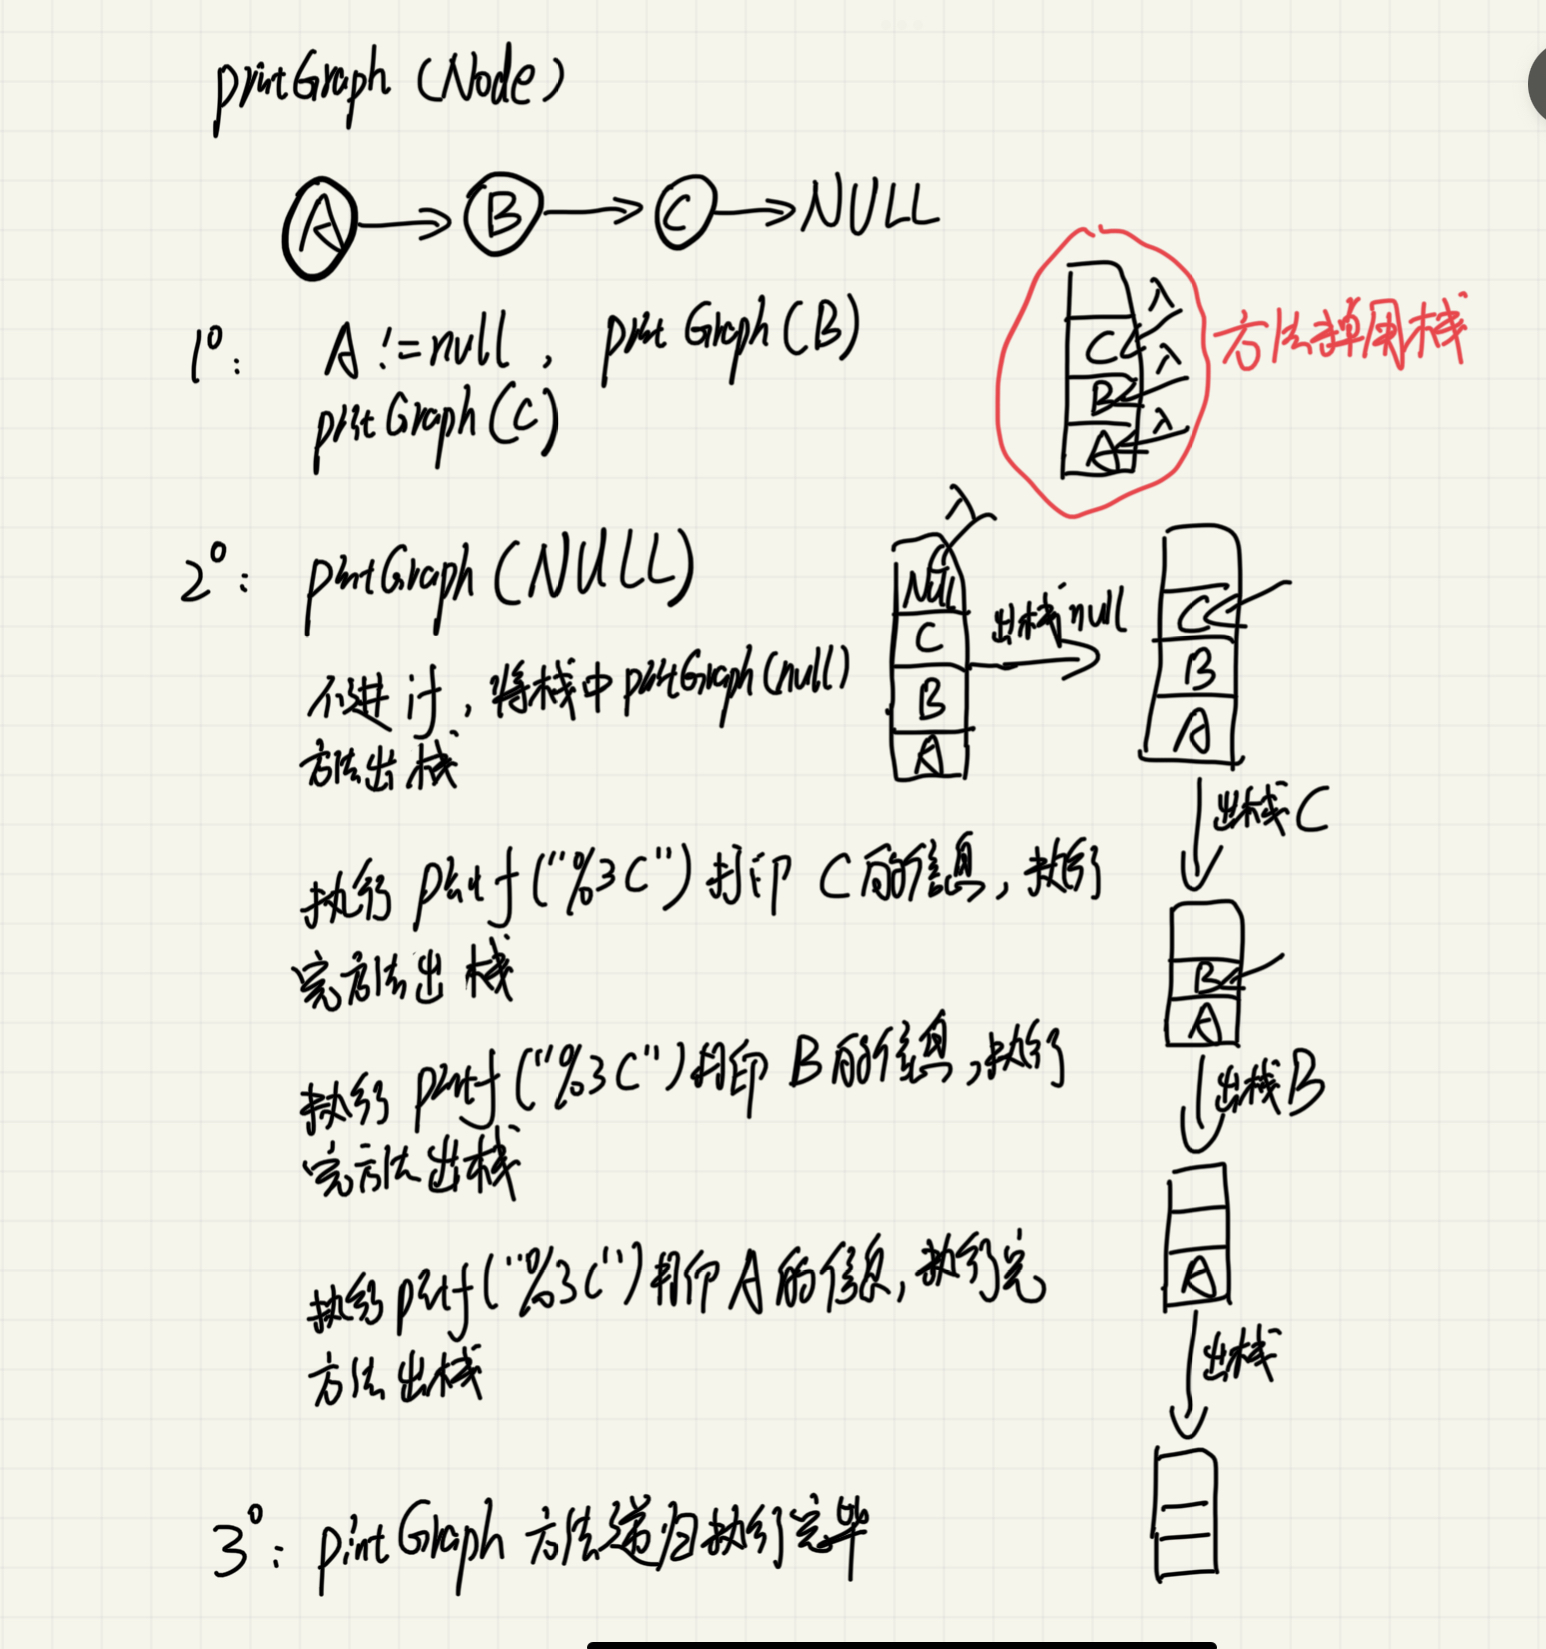 printGraph (Node)
A → B → C → NULL
1°: A != null, print Graph(B)
printGraph(C)
入
C
入
B
入
A
方法调用栈
2°: printGraph(NULL)
不进 if, 将栈中printGraph(null)
方法出栈
入
NULL
C
B
A
出栈null
C
B
A
出栈C
执行 printf("%3C")打印 C的信息, 执行
完方法出栈
B
A
出栈B
执行 printf("%3C")打印 B的信息,执行
完方法出栈
A
出栈
执行 printf("%3C")打印 A的信息,执行完
方法出栈
3°: print Graph 方法递归执行完毕